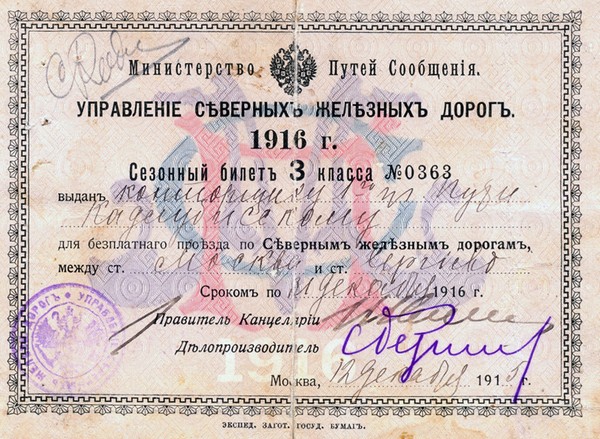 Министерство Путей Сообщенія.
УПРАВЛЕНІЕ СѢВЕРНЫХЪ ЖЕЛѢЗНЫХЪ ДОРОГЪ.
1916 г.
Сезонный билетъ 3 класса №0363
выданъ конторщику 1го уч. Пути
для безплатнаго проѣзда по Сѣвернымъ желѣзнымъ дорогамъ,
между ст. Москва и ст. Сергіево
Срокомъ по 1916 г.
Правитель Канцеляріи
Дѣлопроизводитель
Москва, 12 декабря 1915 г.
1916
ЭКСПЕД. ЗАГОТ. ГОСУД. БУМАГЪ.